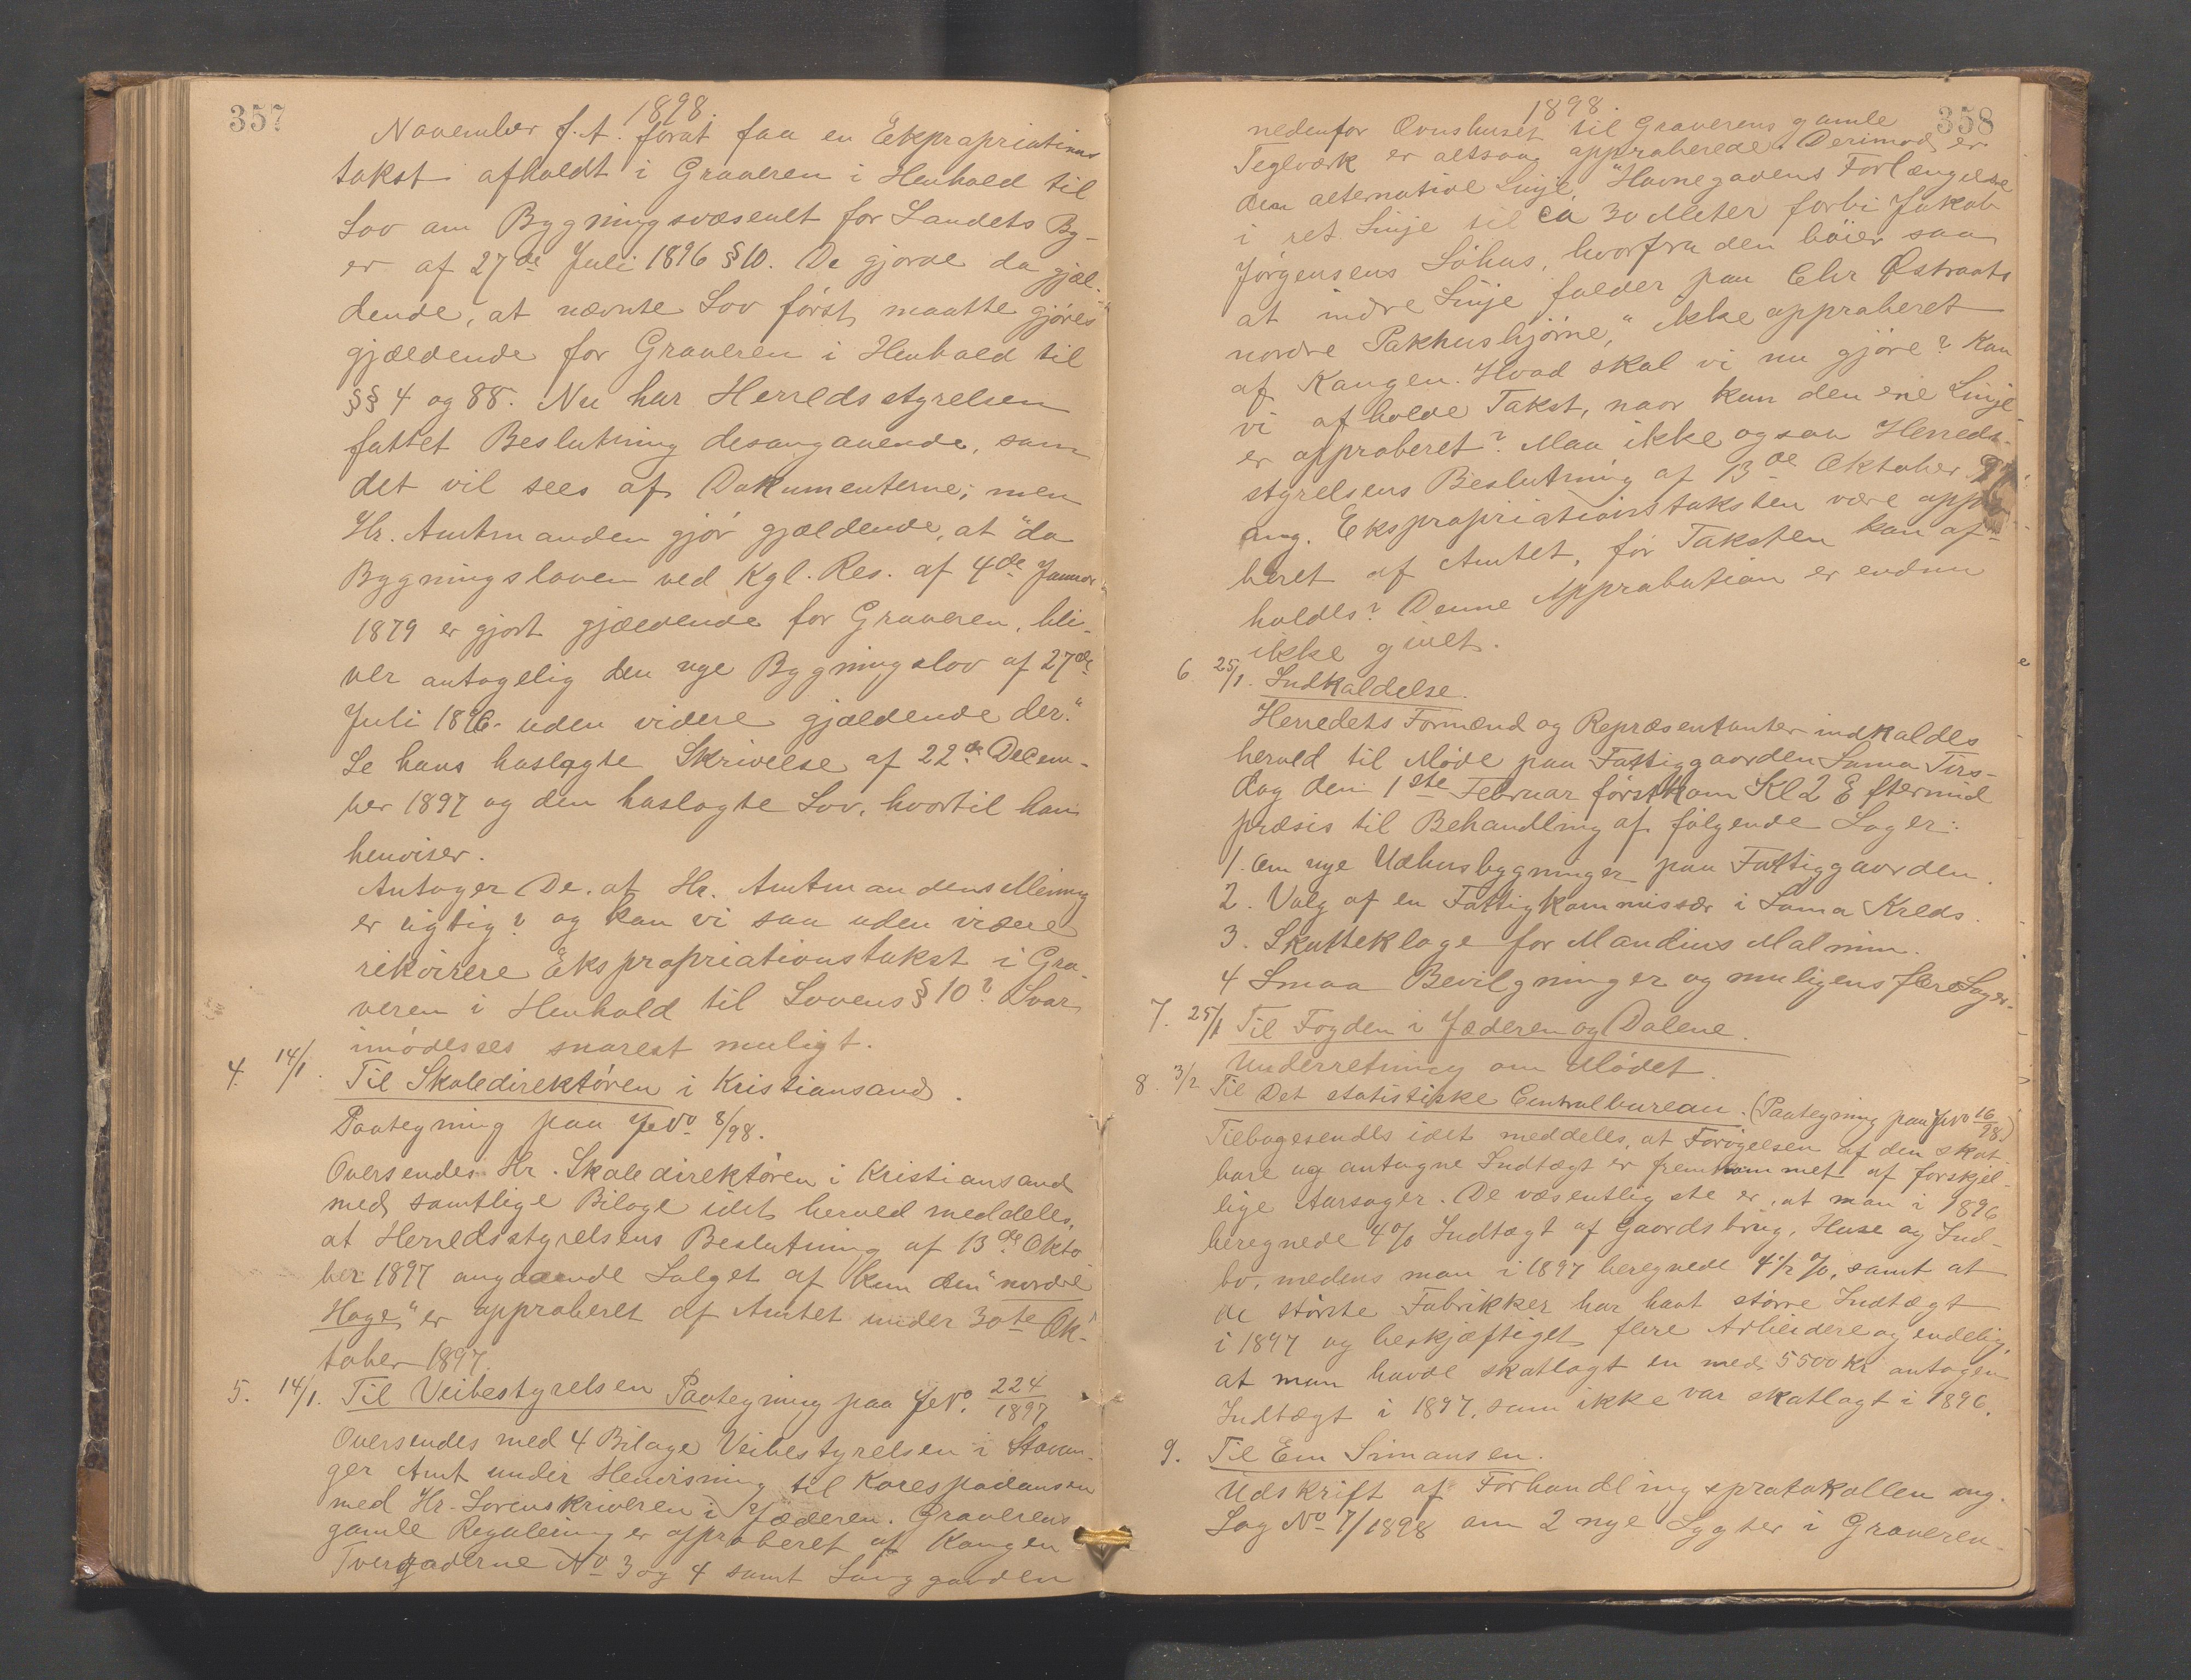 357
1898.
November f. A. forat faa en Ekpropriations
takst afholdt i Graveren i Henhold til
Lov om Bygningsvæsenet for Landets By-
er af 27de Juli 1896 § 10. De gjorde da gjæl-
dende, at nævnte Lov først maatte gjøres
gjældende for Graveren i Henhold til
§§ 4 og 88. Nu har Herredsstyrelsen
fattet Beslutning desangaaende, som
det vil sees af Dokumenterne; men
Hr. Amtmanden gjør gjældende, at "da
Bygningsloven ved Kgl. Res. af 4de Januar
1879 er gjort gjældende for Graveren, bli-
ver antagelig den nye Bygningslov af 27de
Juli 1896 uden videre gjældende der."
Se hans haslagte Skrivelse af 22de Decem-
ber 1897 og den haslagte Lov, hvortil han
henviser.
Antager De, at Hr. Amtmandens Mening
er rigtig? og kan vi saa uden videre
rekvirere Ekspropriationstakst i Gra-
veren i Henhold til Lovens § 10? Svar
imødesees snarest muligt.
4. 14/1. Til Skoledirektøren i Kristiansand.
Paategning paa JNo 8/98.
Oversendes Hr. Skoledirektøren i Kristiansand
med samtlige Bilage idet herved meddeles,
at Herredsstyrelsens Beslutning af 13de Okto
ber 1897 angaaende Salget af kun den "nordre
Hage" er approberet af Amtet under 30te Ok-
tober 1897.
5. 14/1. Til Veibestyrelsen Paategning paa JNo. 224/1897
Oversendes med 4 Bilage Veibestyrelsen i Stavan-
ger Amt under Henvisning til Korespodansen
med Hr. Sorenskriveren i Jæderen. Graverens
gamle Regulering er approberet af Kongen
Tvergaderne No 3 og 4 samt Langgaden
358
1898.
nedenfor Ovnshuset til Graverens gamle
Teglværk er altsaa approberede. Derimod er
den alternative Linje, "Havnegadens Forlængelse
i ret Linje til ca 30 Meter forbi Jakob
Jørgensens Søhus, hvorfra den bøier saa
at indre Linje falder paa Chr Østraats
nordre Pakhushjørne," ikke approberet
af Kongen. Hvad skal vi nu gjøre? Kan
vi afholde Takst, naar kun den ene Linje
er approberet? Maa ikke ogsaa Herreds-
styrelsens Beslutning af 13de Oktober 97
ang. Ekspropriationstaksten være appro-
beret af Amtet, før Taksten kan af-
holdes? Denne Approbation er endnu
ikke givet.
6. 25/1. Indkaldelse.
Herredets Formænd og Repræsentanter indkaldes
herved til Møde paa Fattiggaarden Soma Tirs-
dag den 1ste Februar førstkom Kl 2 Eftermid
præsis til Behandling af følgende Sager:
1. Om nye Udhusbygninger paa Fattiggaarden.
2. Valg af en Fattigkommissær i Soma Kreds.
3. Skatteklage for Mandius Malmin.
4 Smaa Bevilgninger og muligens flere Sager.
7. 25/1 Til Fogden i Jæderen og Dalene.
Underretning om Mødet.
8. 3/2 Til Det statistiske Centralbureau. (Paategning paa JNo 16/98.)
Tilbagesendes idet meddeles, at Forøgelsen af den skat-
bare og antagne Indtægt er fremkommet af forskjel-
lige Aarsager. De væsentligste er, at man i 1896
beregnede 4% Indtægt af Gaardsbrug, Huse og Ind-
bo, medens man i 1897 beregnede 4 1/2 %, samt at
de største Fabrikker har havt større Indtægt
i 1897 og beskjæftiget flere Arbeidere og endelig,
at man havde skatlagt en med 5500 Kr antagen
Indtægt i 1897, som ikke var skatlagt i 1896.
9. Til Em Simonsen.
Udskrift af Forhandlingsprotokollen ang.
Sag No 7/1898 om 2 nye Lygter i Graveren.